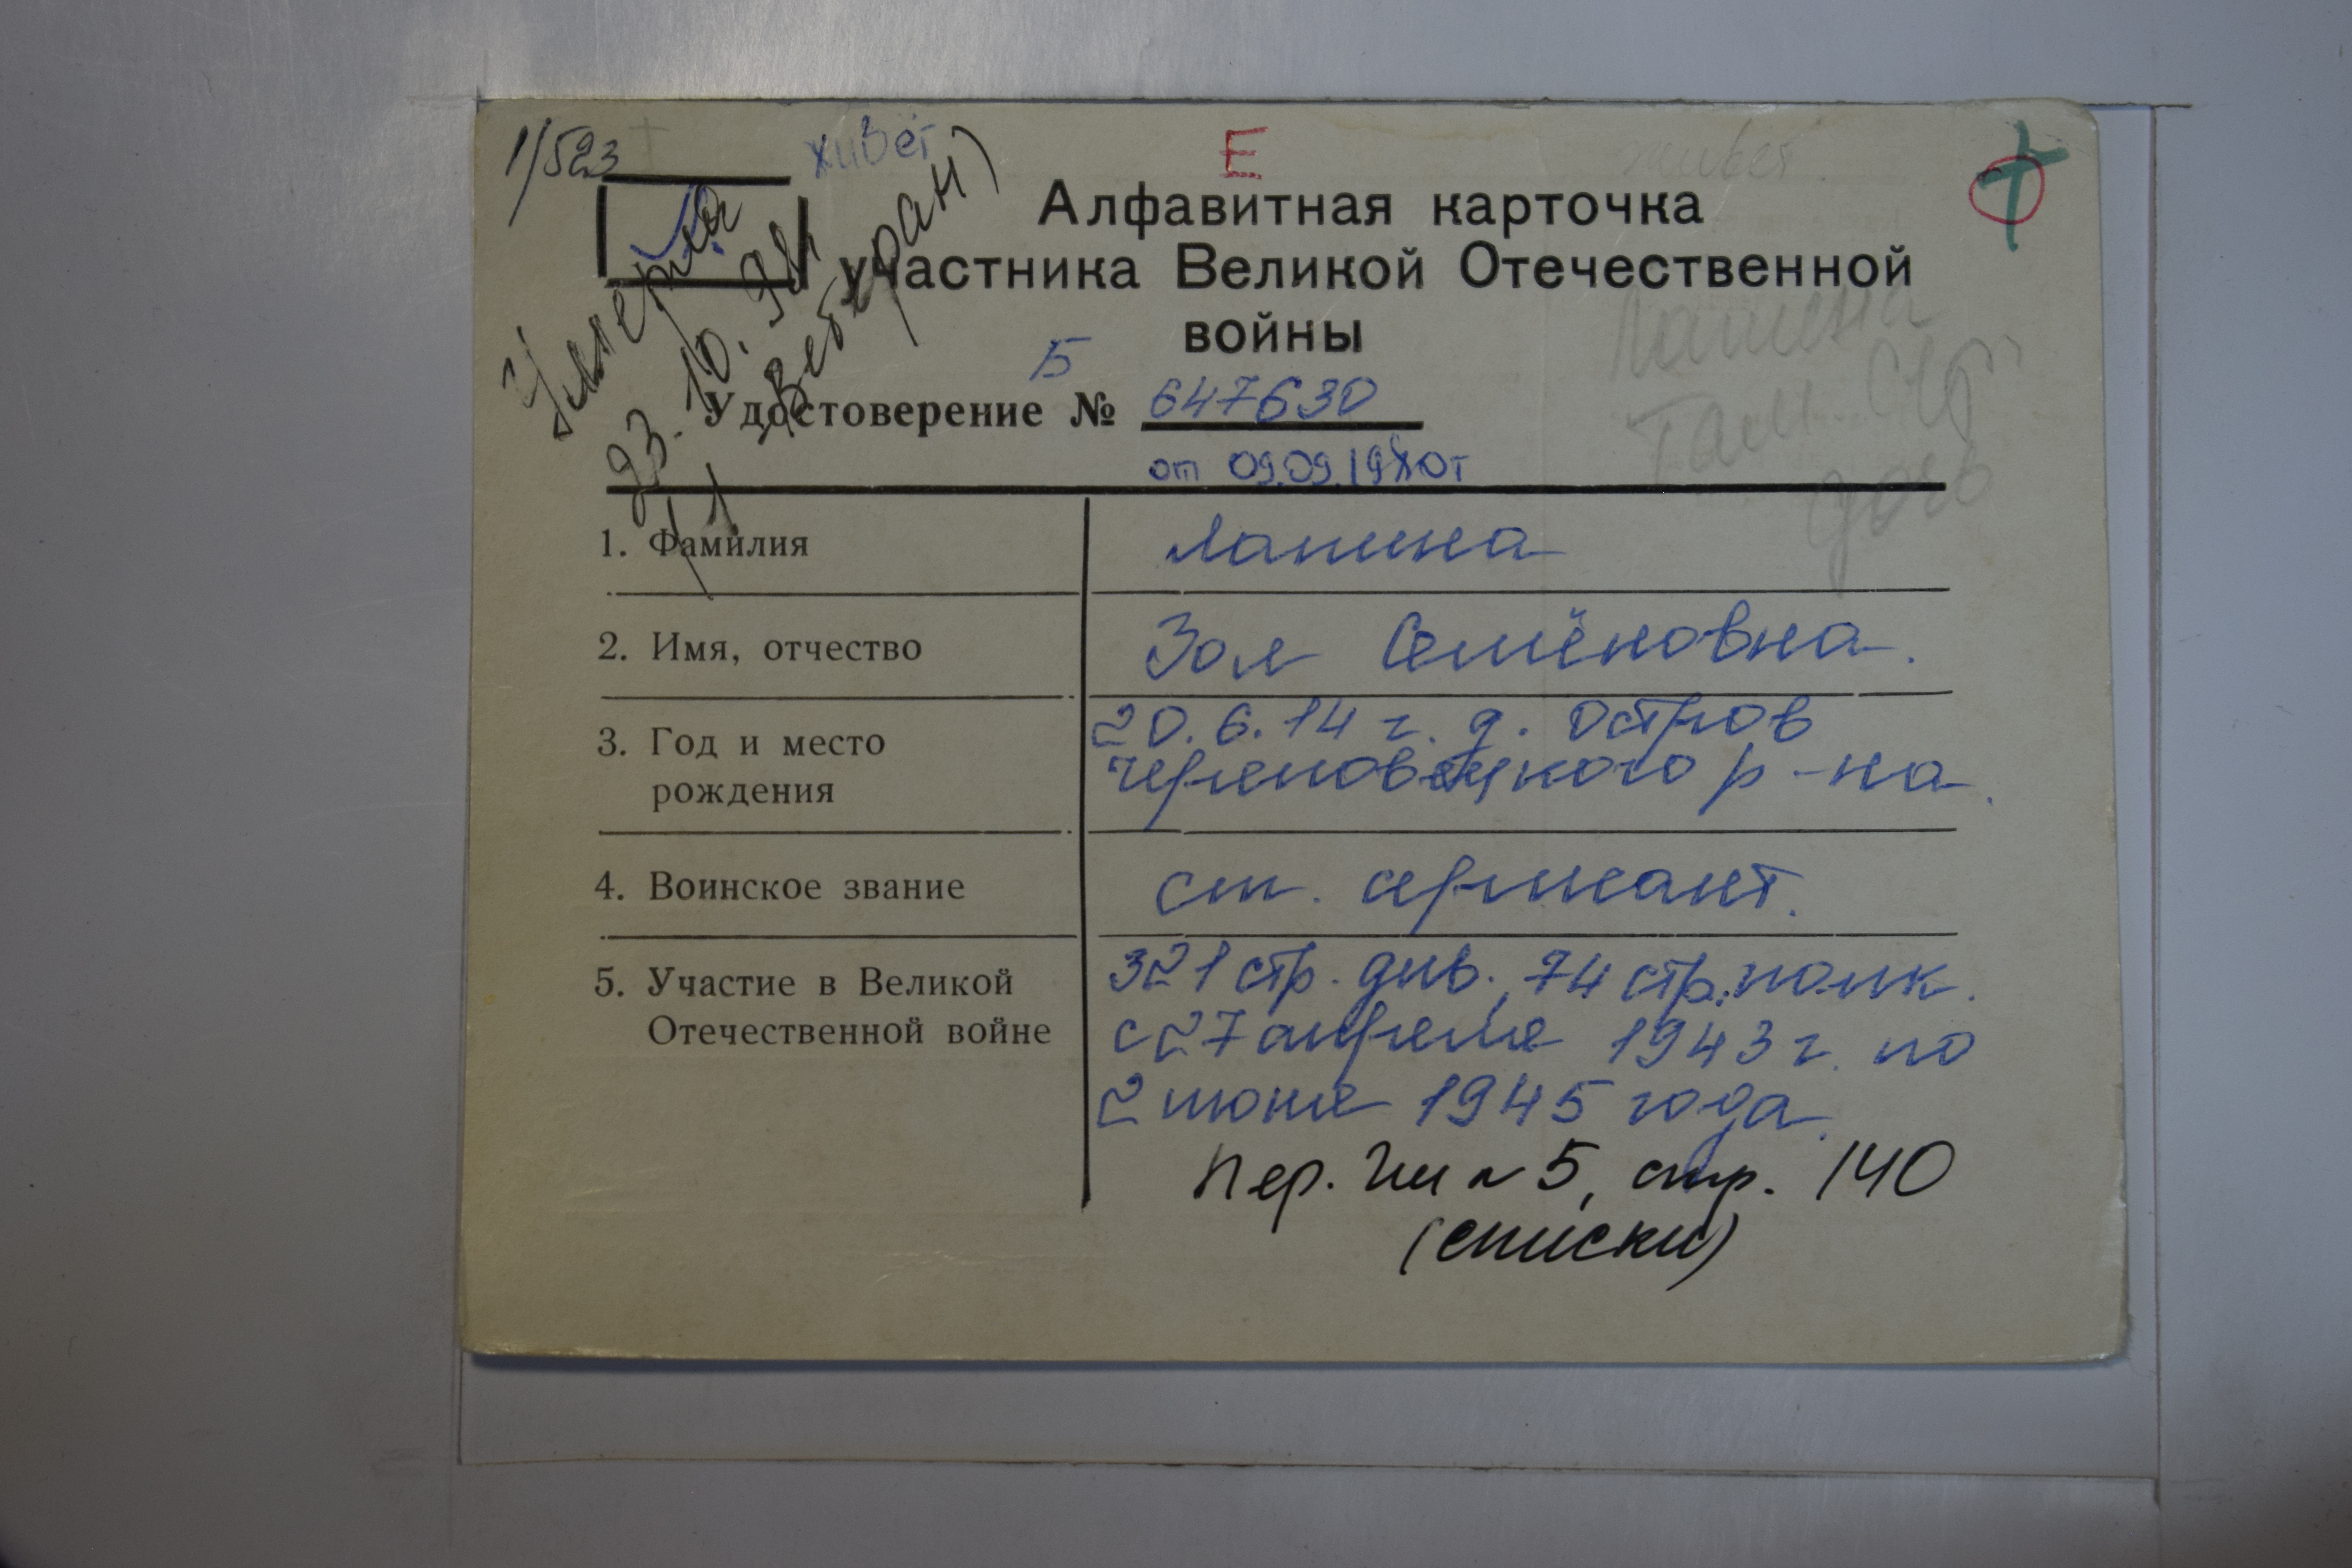 1/523
живёт
Е
живет
Умерла
23.10.94
(Ветеран)
Алфавитная карточка
участника Великой Отечественной
войны
Б
Удостоверение № 647630
от 09.09.1980г
дочь
1. Фамилия Лапина
2. Имя, отчество Зоя Семёновна.
3. Год и место 20.6.14 г. д. Остров
рождения Череповецкого р-на.
4. Воинское звание ст. сержант.
5. Участие в Великой 321 стр. див., 74 стр. полк.
Отечественной войне с 27 апреля 1943 г. по
2 июня 1945 года.
5, стр. 140
(списки)